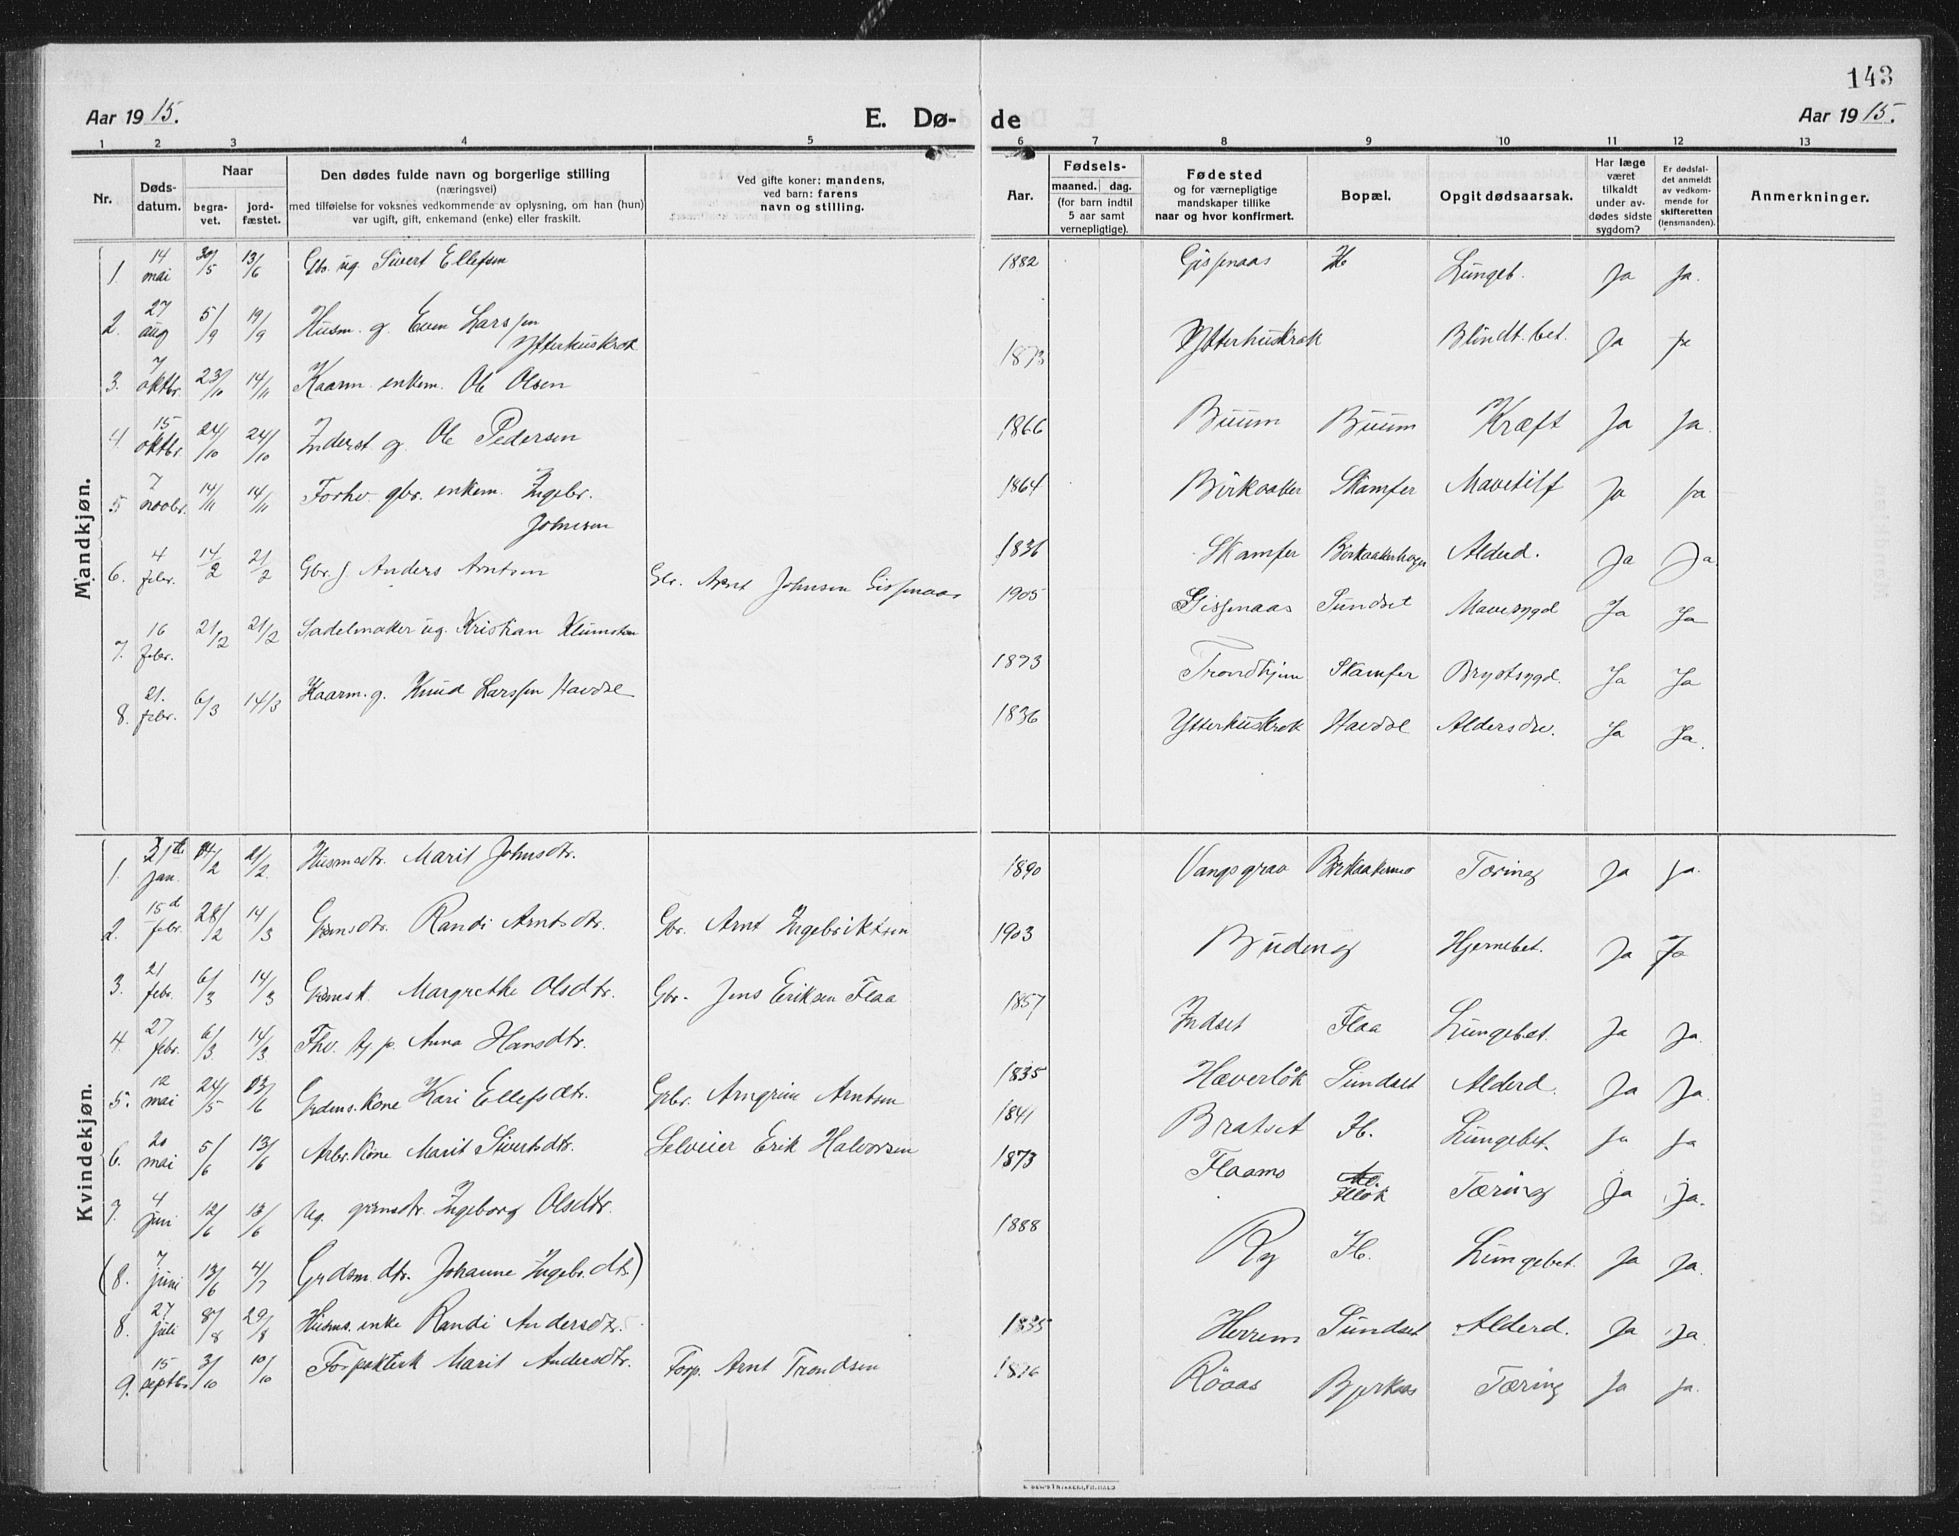 143
Aar 1915.
E. Dø-
de
Aar 1915.
1 2 3 4 5 6 7 8 9 10 11 12 13
Nr.
Døds-
datum.
Naar
begra-
vet.
jord-
fæstet.
Den dødes fulde navn og borgerlige stilling
(næringsvei)
med tilføielse for voksnes vedkommende av oplysning, om han (hun)
var ugift, gift, enkemand (enke) eller fraskilt.
Ved gifte koner: mandens,
ved barn: farens
navn og stilling.
Aar.
Fødsels-
maaned. dag.
(for barn indtil
5 aar samt
vernepligtige).
Fødested
og for værnepligtige
mandskaper tillike
naar og hvor konfirmert.
Bopæl.
Opgit dødsaarsak.
Har læge
været
tilkaldt
under av-
dødes sidste
sygdom?
Er dødsfal-
det anmeldt
av vedkom-
mende for
skifteretten
(lensmanden).
Anmerkninger.
Mandkjøn.
1. 14 mai 30/5 13/6 Gbr. ug. Sivert Ellefsen 1882 Gissenaas H Lungeb. Ja Ja.
2. 27 aug 5/9 19/9 Husm. g. Even Larssen
Ytterhuskrok 1873 Ytterhuskrok Blindt.bet. Ja Ja
3. 7 oktbr. 23/10 14/11 Kaarm. enkem. Ole Olsen 1866 Buum Buum Kræft Ja Ja.
4. 15 oktbr. 24/10 24/10 Inderst g. Ole Pedersen 1864 Birkaaker Skamfer Mavetilf Ja Ja
5 7 novbr. 14/11 14/11 Forhv. gbr. enkem. Ingebr.
Johnsen 1836 Skamfer Birkaakerhagen Alderd. Ja Ja.
6. 4 febr. 14/2 21/2 Gbr.s. Anders Arntsen Gbr. Arnt Johnsen Gissenaas 1905 Gissenaas Sundset Mavesygd Ja Ja
7. 16 febr. 21/2 21/2 Sadelmaker ug. Kristian Klumsten 1893 Trondhjem Skamfer Brystsygd. Ja Ja
8. 21. febr. 6/3 14/3 Kaarm. g. Knud Larssen Havdal 1836 Ytterhuskrok Havdal Aldersdv. Ja Ja.
Kvindekjøn.
1. jan. 14/2 21/2. Husmdtr. Marit Johnsdtr. 1890 Vangsgrav Birkaakermo Tæring Ja Ja.
2. 15d febr. 28/2 14/3 Grdmsdtr. Randi Arntsdtr. Gbr. Arnt Ingebriktsen 1903 Buden g Hjernebet. Ja Ja
3. 21 febr. 6/3 14/3 Grdmsk. Margrethe Olsdtr. Gbr. Jens Eriksen Flaa 1857 Indset Flaa Lungebet. Ja Ja.
4. 27 febr. 6/3 14/3 Fhv. tj. p. Anna Hansdtr. 1835 Hæverløk Sundset Alderd. Ja Ja.
5. 12 mai 24/5 13/6 Grdms.kone Kari Ellefsdtr. Grbr. Arngrim Arntsen 1841 Bratset H. Lungebet. Ja Ja
6. 20 mai 5/6 13/6 Arbr.kone Marit Sivertsdtr. Selveier Erik Halvorsen 1873 Flaamo Flløk Tæring Ja Ja.
7. 4 juni 12/6 13/6 Ug. grdmsdtr. Ingeborg Olsdtr. 1888 Ry H. Lungebet. Ja Ja.
(8. 7 juni 13/6 4/7 Grdsm.dtr. Johanne Ingebr.dtr)
8. 27 juli 8/8 29/8 Husms. enke Randi Andersdtr. 1835 Herrem Sundset Alderd. Ja Ja.
9. 15 septbr 3/10 10/10 Forpaktersk Marit Andersdtr. Forp. Arnt Trondsen 1876 Røaas Bjerkaas Tæring Ja Ja.